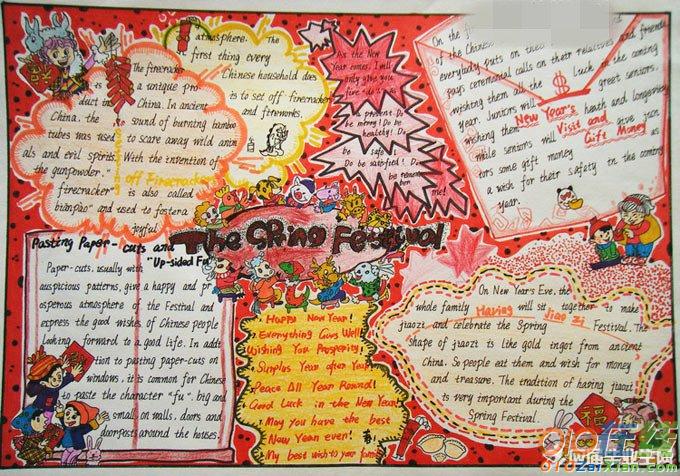 atmosphere. The
first thing every
Chinese household does
is to set off firecracker
and fireworks.
The firecracker
is a unique pro
duct in China. In ancient
China, the sound of burning bamboo
tubes was used to scare away wild anim
als and evil spirits. With the invention of
the gunpowder."
off Firecracker
firecracker" is also called
bianpao" and used to foster a
joyful
As the New
Year comes, I will
only give you
five "do's"
present. Do
be merry! Do be
healthy! Do
be safe!
Do be satisfied! Do
be remember
me!
On the
of the Chinese
everybody puts on
pays ceremonial calls on their relatives and friends
wishing them all the Luck in the coming
year. Juniors will greet seniors,
wishing them heath and longevity
New Year's
Visit and
Gift Money
male seniors will give jun
iors some gift money as
a wish for their safety in the coming
year.
The SPring Festival
Pasting Paper-cuts and
"Up-sided Fu"
Paper-cuts, usually with
auspicious patterns, give a happy and pr
osperous atmosphere of the Festival and
express the good wishes of Chinese people
looking forward to a good life. In addi
tion to pasting paper-cuts on
windows, it is common for Chinese
to paste the character "fu". big and
small on walls, doors and
doorposts around the houses.
Happy New Year!
Everything Goes Well!
Wishing You Prosperity!
Surplus Year after Year
Peace All Year Round!
Good Luck in the New Year!
May you have the best
New Year ever!
My best wish to your family
On New Year's Eve, the
whole family will sit together to make
Having Jiao Zi
jiaozi and celebrate the Spring Festival. The
shape of jiaozi is like gold ingot from ancient
China. So people eat them and wish for money
and treasure. The tradition of having jiaozi
is very important during the
Spring Festival.
福